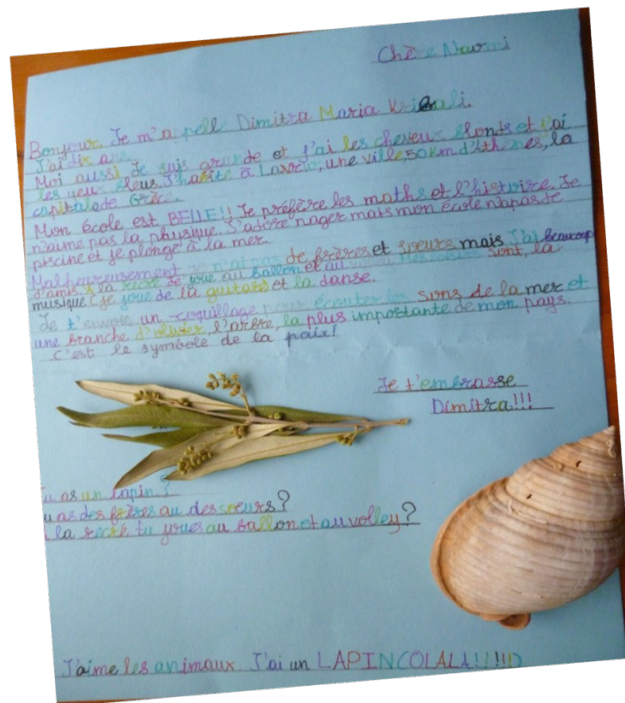 Chère Nawmi
Bonjour. Je m'appelle Dimitra Maria
J'ai dix ans.
Moi aussi je suis grande et j'ai les cheveux blonds et j'ai
les yeux bleus. J'habite à Lavrio, une ville 50km d'Athènes, la
capitale de Grèce.
Mon école est BELLE!! Je préfère les maths et l'histoire. Je
n'aime pas la physique. J'adore nager mais mon école n'a pas de
piscine et je plonge à la mer.
Malheureusement je n'ai pas de frères et soeurs mais j'ai beaucoup
d'amis. À la récré je joue au ballon et au Mes loisirs sont, la
musique (je joue de la guitare) et la danse.
Je t'envoie un coquillage pour écouter les sons de la mer et
une branche d'olivier l'arbre, la plus importante de mon pays
C'est le symbole de la paix!
Je t'embrasse
Dimitra!!!
u as un lapin?
u as des frères au des soeurs?
la recré tu joues au ballon et au volley?
J'aime les animaux. J'ai un LAPIN COLALA!!!!!!